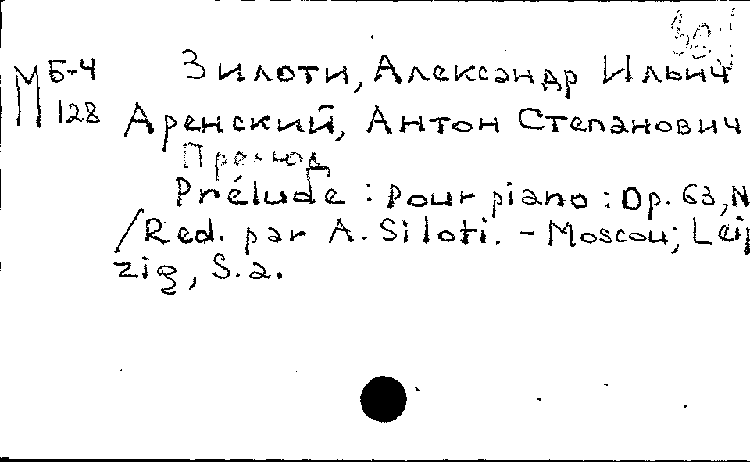 М Б-4 Зилоти, Александр Ильич
128 Аренский, Антон Степанович
Прелюд
Prélude : pour piano : Op. 63, N
/Red. par A. Siloti. - Moscou; Leip
zig, S.a.